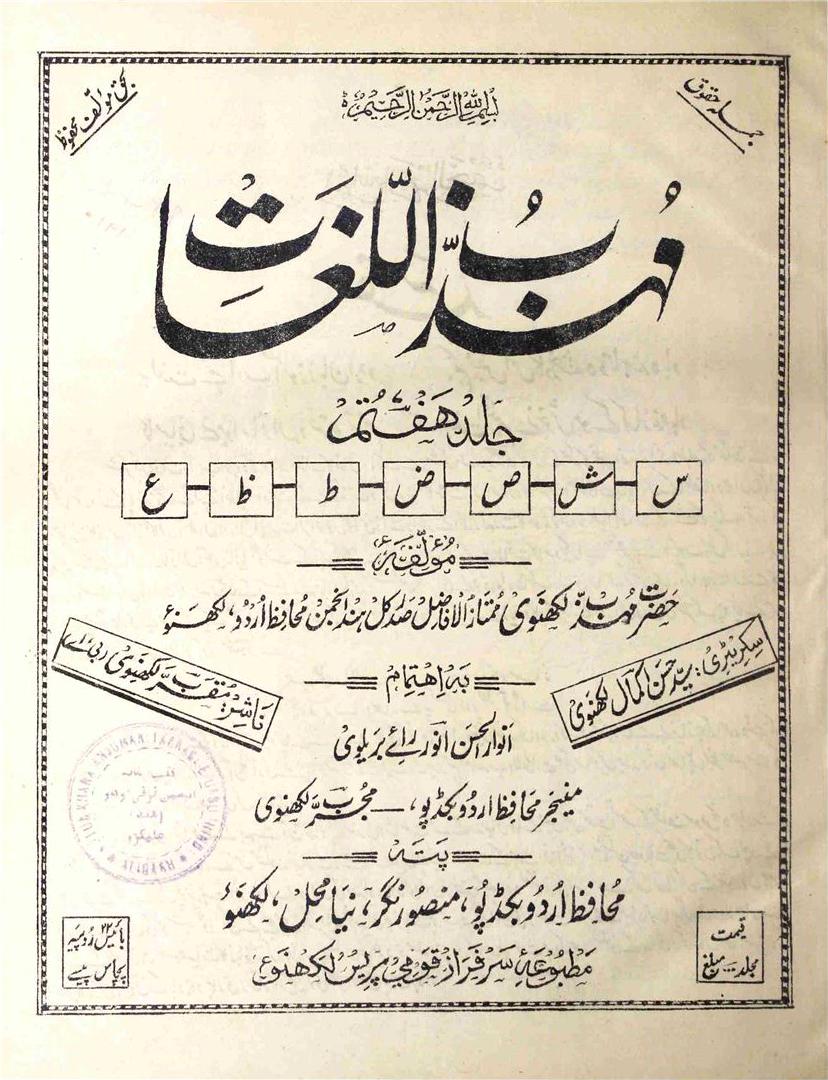 جملہ حقوق
بحق مؤلف محفوظ
بسم اللہ الرحمن الرحیم
مُہذّبُ اللّغات
جلد ہفتم
س ش ص ض ط ظ ع
مؤلفہ
حضرت مہذبؔ لکھنوی ممتاز الافاضل صدر کل ہند انجمن محافظ اردو، لکھنؤ
سکریٹری: سید حسن کمال لکھنوی
ناشر: مقربؔ لکھنوی (بی اے)
بہ اہتمام
انوار الحسن انورؔ رائے بریلوی
مینیجر محافظ اردو بکڈپو، — مجربؔ لکھنوی
پتہ
محافظ اردو بکڈپو، منصور نگر، نیا محل، لکھنؤ
قیمت
مجلد ... مبلغ
۲۲
بائیس روپیہ
پچاس پیسے
مطبوعۂ سرفراز قومی پریس لکھنؤ
KUTUB KHANA ANJUMAN TARAQQI-E URDU (HIND)
ALIGARH
کتب خانہ
انجمن ترقی اردو
(ہند)
علیگڑھ